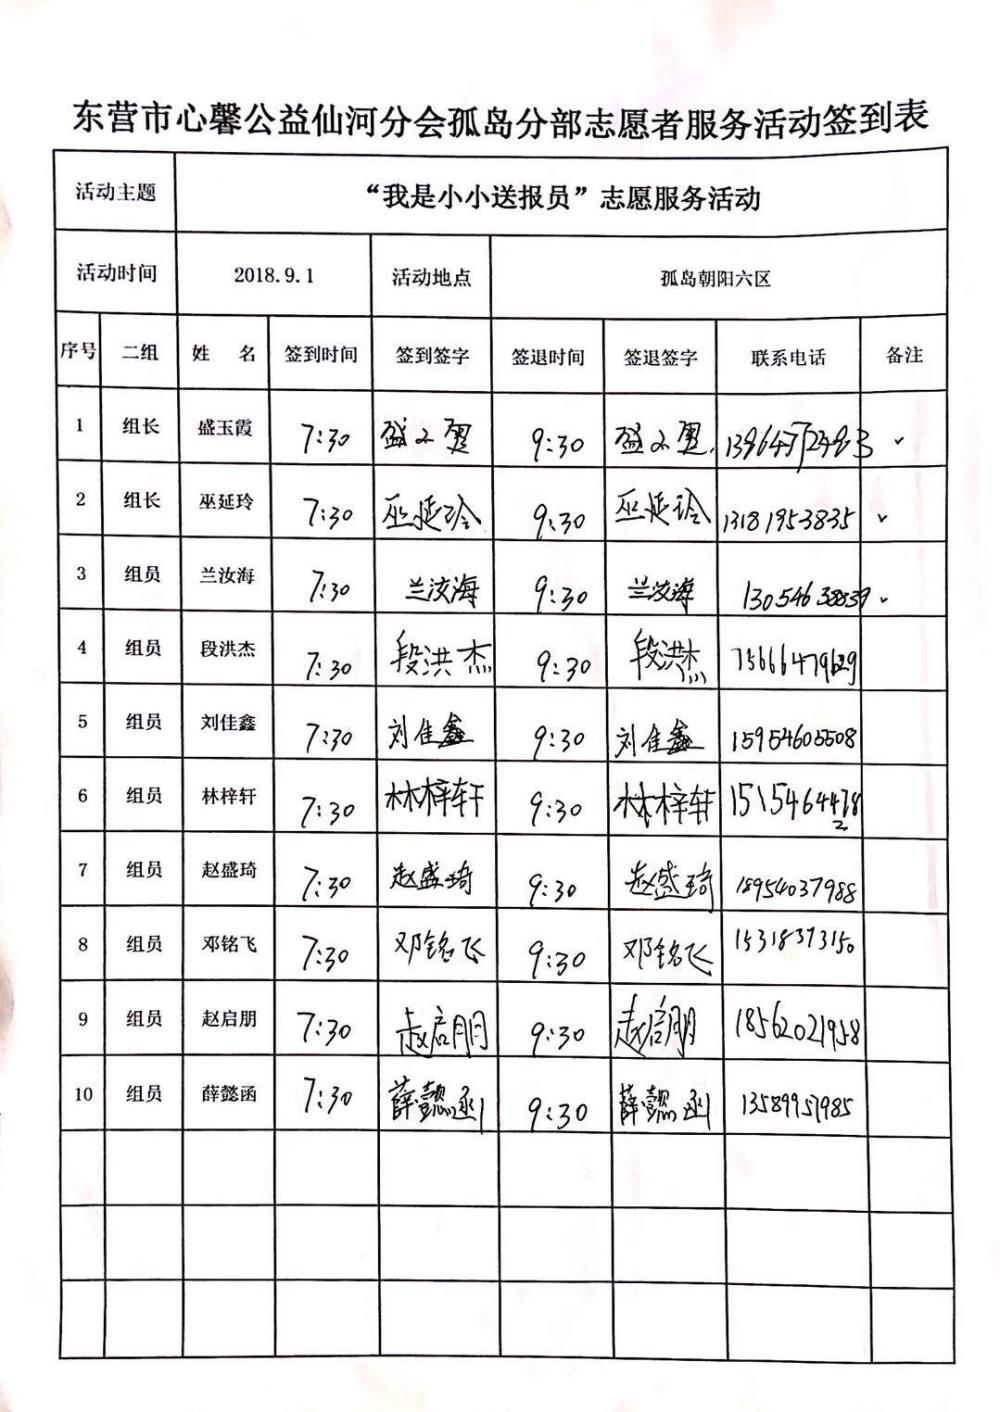 东营市心馨公益仙河分会孤岛分部志愿者服务活动签到表
活动主题 “我是小小送报员”志愿服务活动
活动时间 2018.9.1 活动地点 孤岛朝阳六区
序号 二组 姓 名 签到时间 签到签字 签退时间 签退签字 联系电话 备注
1 组长 盛玉霞 7:30 9:30 ✓
2 组长 巫延玲 7:30 巫延玲 9:30 巫延玲 13181953835 ✓
3 组员 兰汝海 7:30 兰汝海 9:30 兰汝海 ✓
4 组员 段洪杰 7:30 段洪杰 9:30 段洪杰 15666479629
5 组员 刘佳鑫 7:30 刘佳鑫 9:30 刘佳鑫 15954605508
6 组员 林梓轩 7:30 林梓轩 9:30 林梓轩
7 组员 赵盛琦 7:30 赵盛琦 9:30 赵盛琦 18954037988
8 组员 邓铭飞 7:30 邓铭飞 9:30 邓铭飞 15318373150
9 组员 赵启朋 7:30 赵启朋 9:30 赵启朋 18562021958
10 组员 薛懿函 7:30 薛懿函 9:30 薛懿函 13589957985